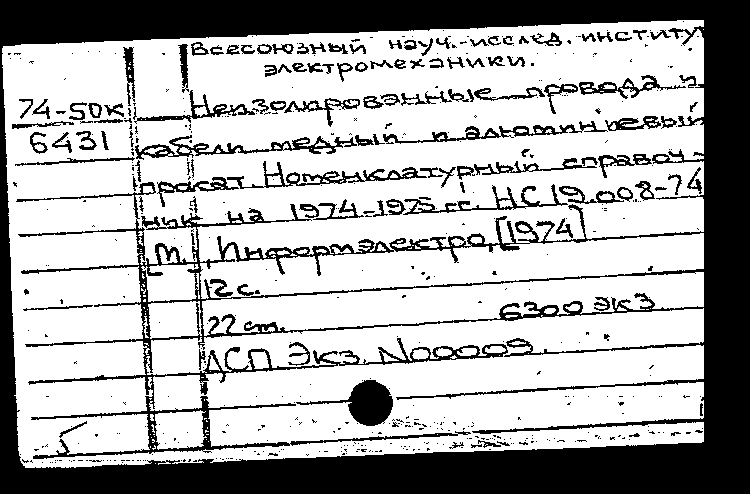 Всесоюзный науч.-исслед. институт
электромеханики.
74-50к Неизолированные провода и
6431 кабели медный и алюминиевый
прокат. Номенклатурный справоч-
ник на 1974-1975 гг. НС 19.008-74
[М.], Информэлектро, [1974]
12 с.
22 см. 6300 экз
ДСП Экз. N00009
5